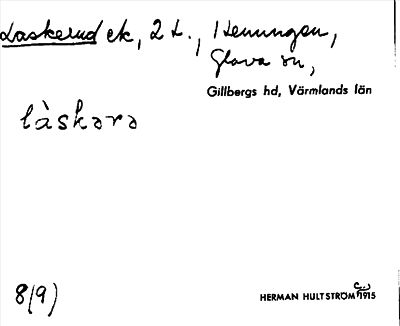 Laskerud ek, 2 t., Henungen,
Glava sn,
Gillbergs hd, Värmlands län
làskərə
8(9)
HERMAN HULTSTRÖM c. 1915